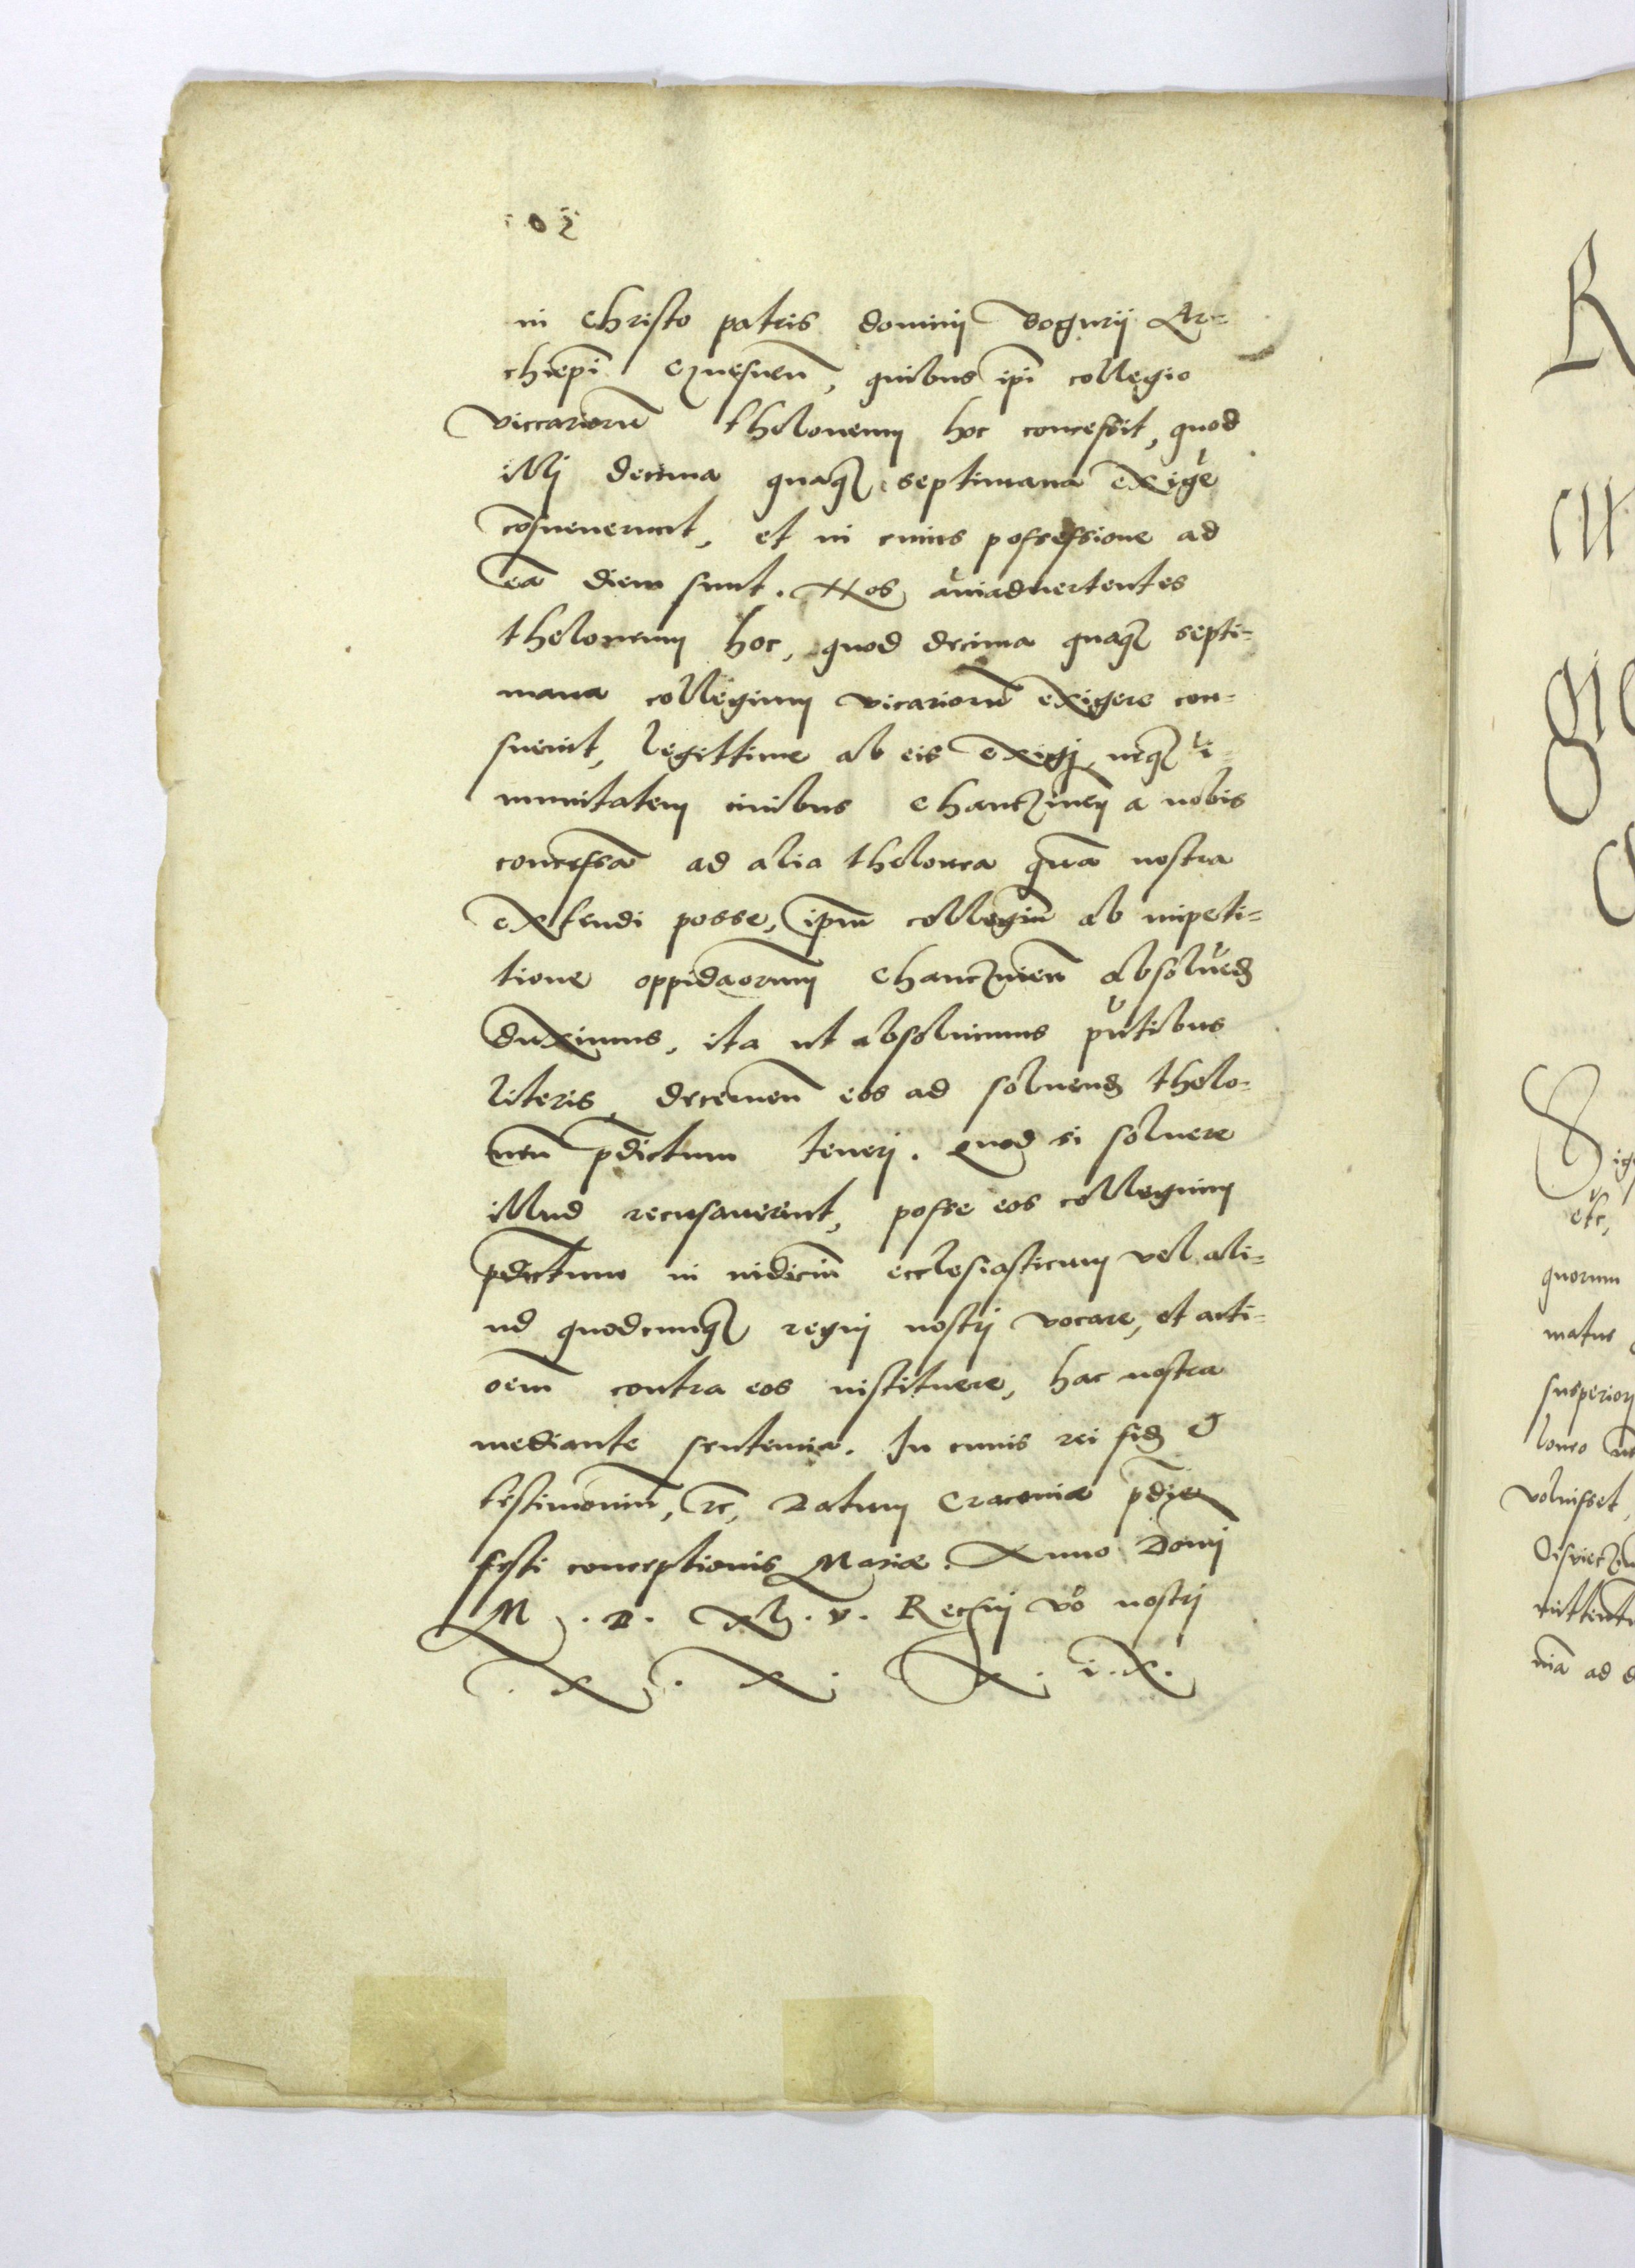 in Christo patris dominij Bogurij Ar-
chiepi Gznesnen̄, quibus ipi collegio
viccariorū thelonemn hoc concessit, quod
illi decima quaq septimana exige
cōsueuerunt, et in cuius possessione ad
eā diem sunt. Nos aiaduertentes
theloneum hoc, quod decima quaq septi-
mana collegium vicariorū exigere con-
sueuit, legittime ab eis exigi, neq ī-
munitatem ciuibus Chanczinen̄ a nobis
concessā ad alia thelonea quā nostra
extendi posse, ipm collegiū ab impeti-
tione oppidaorum Chanczinen̄ absoluēd
duximus, ita ut absoluimus pn̄tibus
literis, decernen̄ eos ad soluend thelo-
neū pdictum teneri. Quod si soluere
illud recusauerint, posse eos collegium
pdictum in iudiciū ecclesiasticum vel ali-
ud quodcunq regni nostri vocare, et acti-
oem contra eos instituere, hac nostra
mediante sententia. In cuius rei fid &
testimoniū, rc, Datum Cracouiæ pdie
festi conceptionis Mariæ. Anno Domi
M. D. XL. V. Regni vo nostri
X. X. X. i. X.
R
Sig
etc,
quorum
matus
superiori
voluisset,
mittent
niā ad